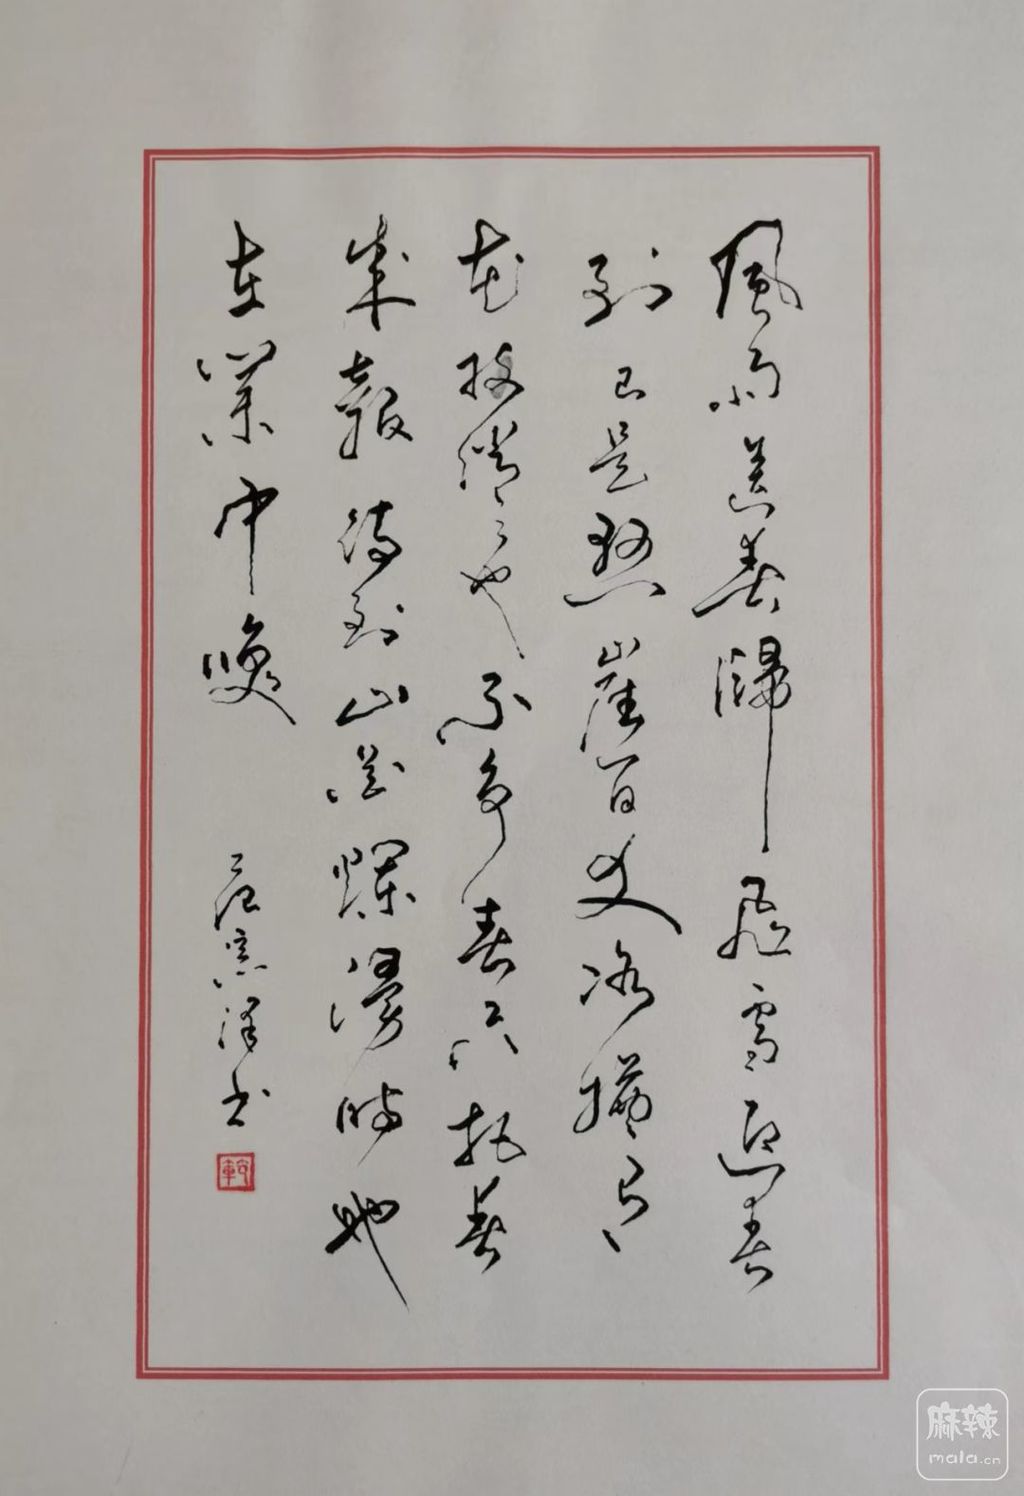 風雨送春歸飛雪迎春
到已是懸崖百丈冰猶有
花枝俏々也不爭春只把春
來報待到山花爛漫時她
在叢中咲
范泽书
麻辣
mala.cn